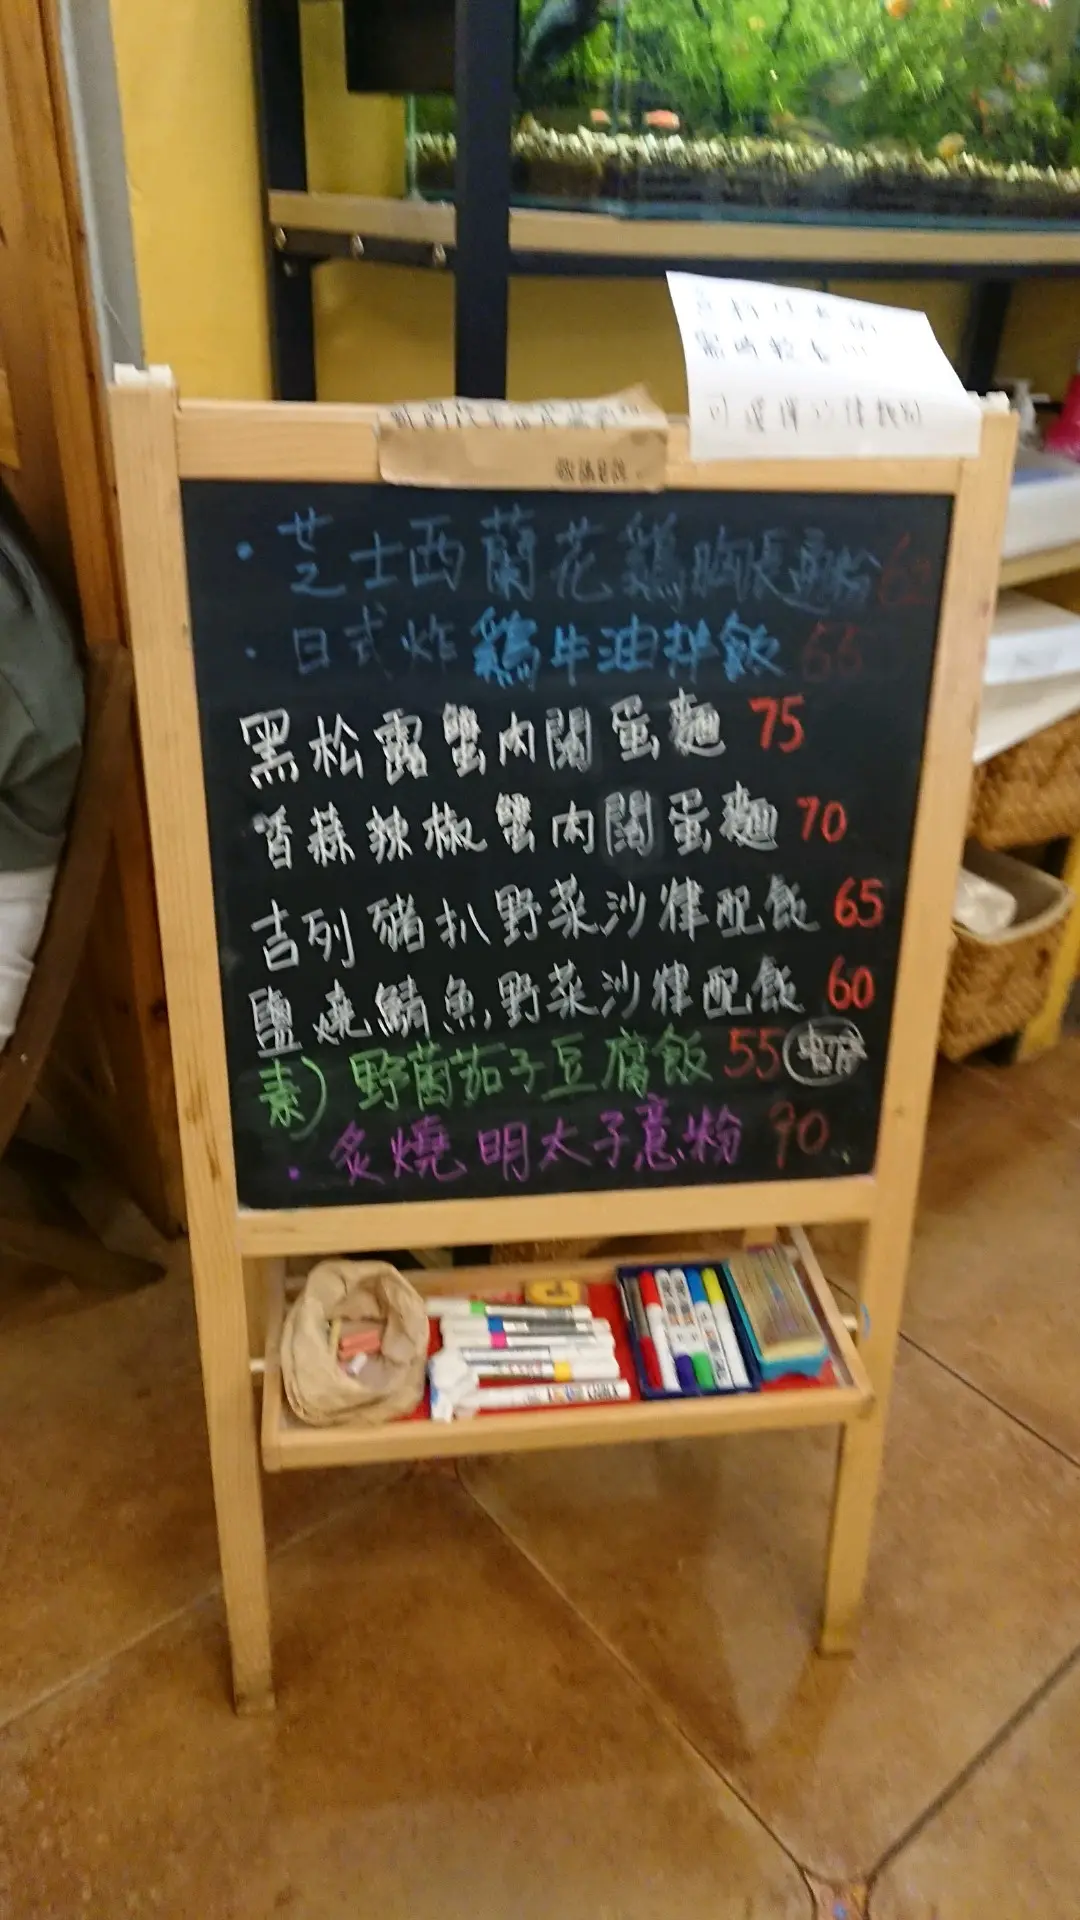 可選擇沙律飯
敬請見諒
・芝士西蘭花鷄胸長通粉
・日式炸鷄牛油拌飯 66
黑松露蟹肉闊蛋麵 75
香蒜辣椒蟹肉闊蛋麵 70
吉列豬扒野菜沙律配飯 65
鹽燒鯖魚野菜沙律配飯 60
素）野菌茄子豆腐飯 55
・炙燒明太子意粉 90